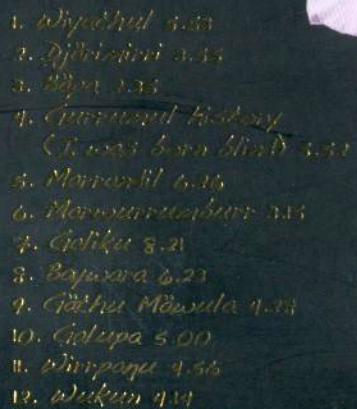 1. Wiyathul 5.53
2. Djärimirri 3.55
3. Bäpa 3.35
4. Gurrumul History
(I was born blind) 5.53
5. Marrandil 6.26
6. Marwurrumburr 3.15
7. Galiku 8.21
8. Baywara 6.23
9. Gäthu Mäwula 4.28
10. Galupa 5.00
11. Wirrpanu 4.56
12. Wukun 4.14